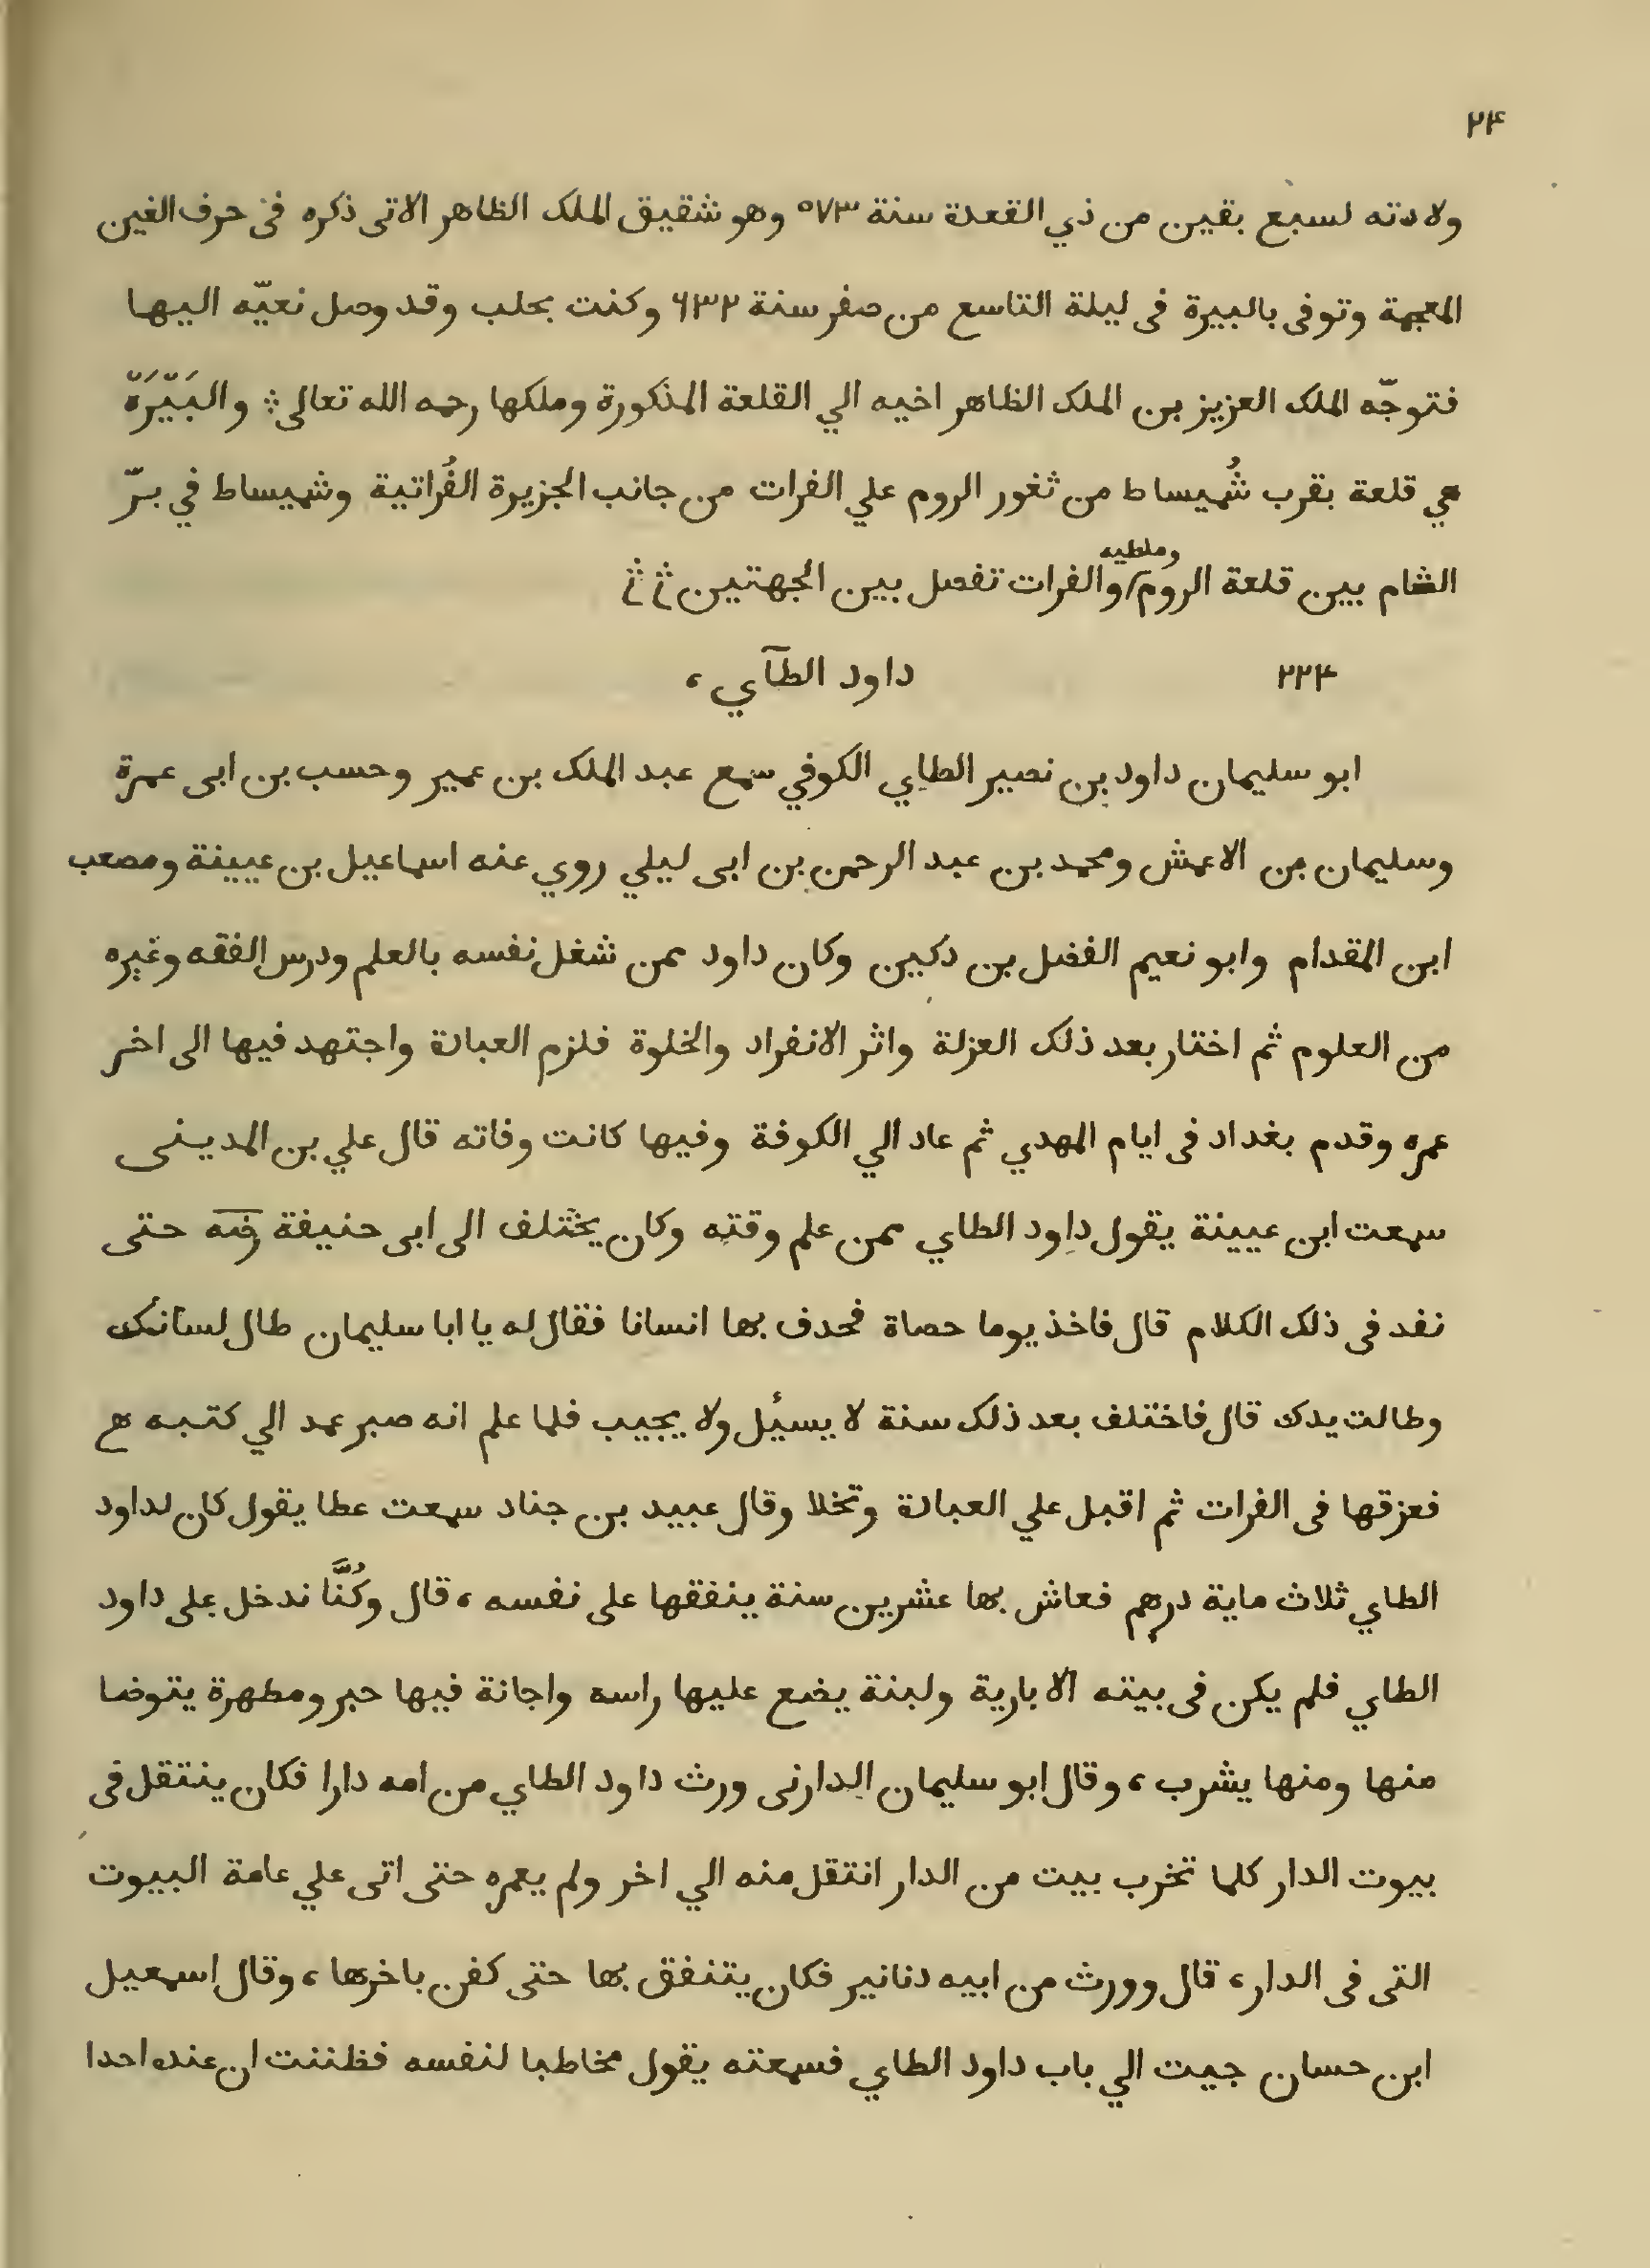 ۲۴
ولادته لسبع بقين من ذي القعدة سنة ۵۷۳ وهو شقيق الملك الظاهر الاتى ذكره فى حرف الغين
المعجمة وتوفى بالبيرة فى ليلة التاسع من صفر سنة ۶۳۲ وكنت بحلب وقد وصل نعيّه اليها
فتوجّه الملك العزيز بن الملك الظاهر اخيه الي القلعة المذكورة وملكها رحمه الله تعالى والبَيّرَة
هي قلعة بقرب شُميساط من ثغور الروم علي الفرات من جانب الجزيرة الفُراتية وشميساط في برّ
الشام بين قلعة الروم وملطيه والفرات تفصل بين الجهتين
۲۲۴ داود الطآي ،
ابو سليمان داود بن نصير الطاي الكوفي سمع عبد الملك بن عمير وحسب بن ابى عمرة
وسليمان بن الاعمش ومحمد بن عبد الرحمن بن ابى ليلي روي عنه اسماعيل بن عيينة ومصعب
ابن المقدام وابو نعيم الفضل بن دكين وكان داود ممن شغل نفسه بالعلم ودرس الفقه وغيره
من العلوم ثم اختار بعد ذلك العزلة واثر الانفراد والخلوة فلزم العبادة واجتهد فيها الى اخر
عمره وقدم بغداد فى ايام المهدي ثم عاد الي الكوفة وفيها كانت وفاته قال علي بن المدينى
سمعت ابن عيينة يقول داود الطاي ممن علم وقته وكان يختلف الى ابى حنيفة رضه حتى
نفد فى ذلك الكلام قال فاخذ يوما حصاة فحدف بها انسانا فقال له يا ابا سليمان طال لسانك
وطالت يدك قال فاختلف بعد ذلك سنة لا يسئل ولا يجيب فلما علم انه صبر عمد الي كتبه
فعزقها فى الفرات ثم اقبل علي العبادة وتخلا وقال عبيد بن جناد سمعت عطا يقول كان لداود
الطاي ثلاث ماية درهم فعاش بها عشرين سنة ينفقها على نفسه ، قال وكُنَّا ندخل على داود
الطاي فلم يكن فى بيته الا بارية ولبنة يضع عليها راسه واجانة فيها حبر ومطهرة يتوضا
منها ومنها يشرب ، وقال ابو سليمان الدارنى ورث داود الطاي من امه دارا فكان ينتقل فى
بيوت الدار كلما تخرب بيت من الدار انتقل منه الي اخر ولم يعمره حتى اتى علي عامة البيوت
التى فى الدار ، قال وورث من ابيه دنانير فكان يتنفق بها حتى كفن باخرها ، وقال اسمعيل
ابن حسان جيت الي باب داود الطاي فسمعته يقول مخاطبا لنفسه فظننت ان عنده احدا